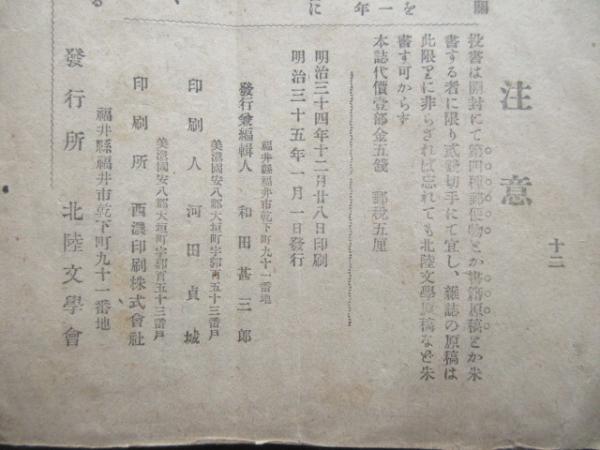 十二
注意
投書は開封にて第四種郵便物とか書籍原稿とか朱
書する者に限り貳錢切手にて宜し、雜誌の原稿は
此限りに非らざれば忘れても北陸文學原稿などゝ朱
書す可からず
本誌代價壹部金五錢 郵稅五厘
明治三十四年十二月廿八日印刷
明治三十五年一月一日發行
福井縣福井市乾下町九十一番地
發行兼編輯人 和田甚三郎
美濃國安八郡大垣町字郭百五十三番戶
印刷人 河田貞城
美濃國安八郡大垣町字郭百五十三番戶
印刷所 西濃印刷株式會社
福井縣福井市乾下町九十一番地
發行所 北陸文學會